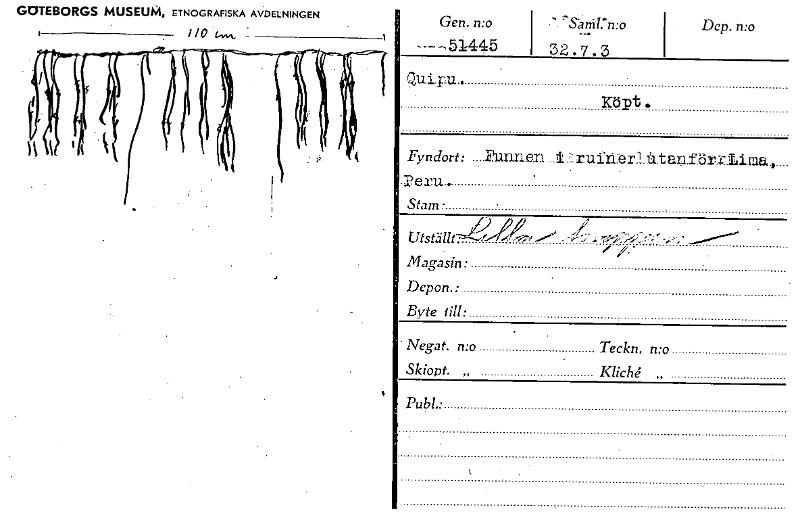 GÖTEBORGS MUSEUM, ETNOGRAFISKA AVDELNINGEN
110 cm
Gen. n:o Saml. n:o Dep. n:o
51445 32.7.3
Quipu.
Köpt.
Fyndort: Funnen i ruiner utanför Lima,
Peru.
Stam:
Utställt: Lilla trappan
Magasin:
Depon.:
Byte till:
Negat. n:o Teckn. n:o
Skiopt. „ Kliché „
Publ.: